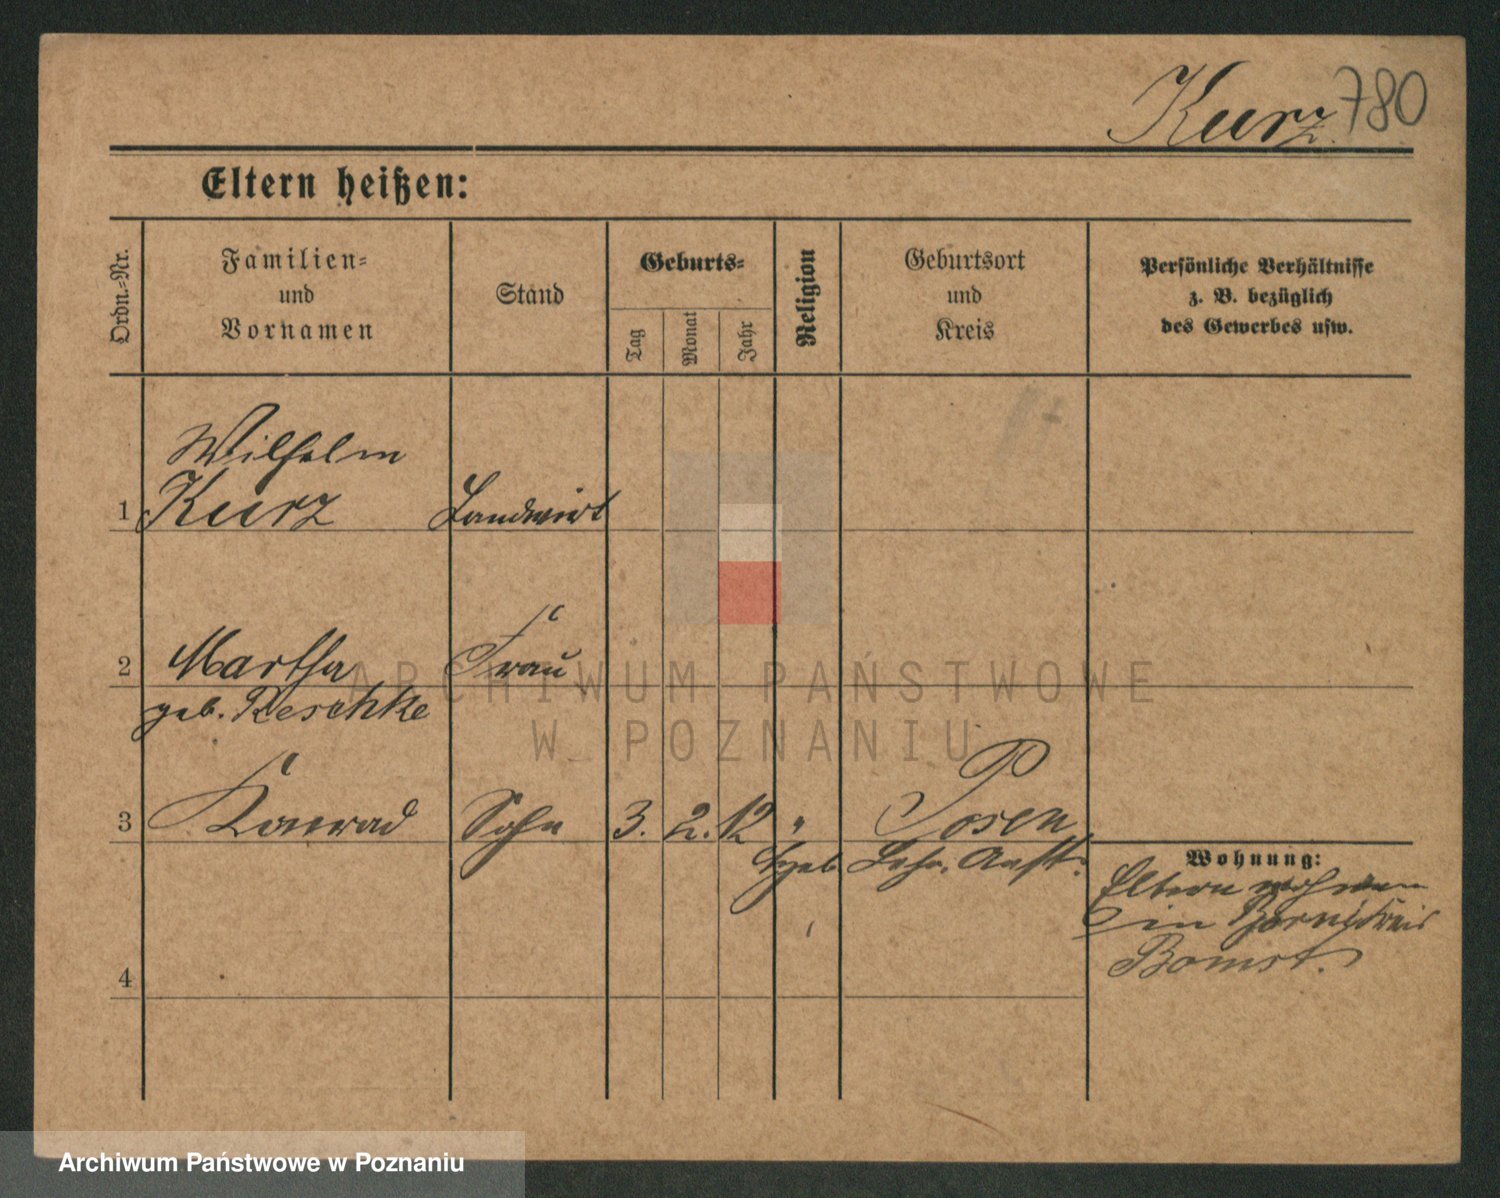 Kurz. 780
Eltern heißen:
Ordn.-Nr.
Familien-
und
Vornamen
Stand
Geburts-
Tag
Monat
Jahr
Religion
Geburtsort
und
Kreis
Persönliche Verhältnisse
z. B. bezüglich
des Gewerbes usw.
Wilhelm
1 Kurz Landwirt
2 Martha Frau
geb. Reschke
3 Konrad Sohn 3. 2. 12 " Posen
Wohnung:
Eltern wohnen
in Kreis
Bomst.
4
ARCHIWUM PAŃSTWOWE
W POZNANIU
Archiwum Państwowe w Poznaniu